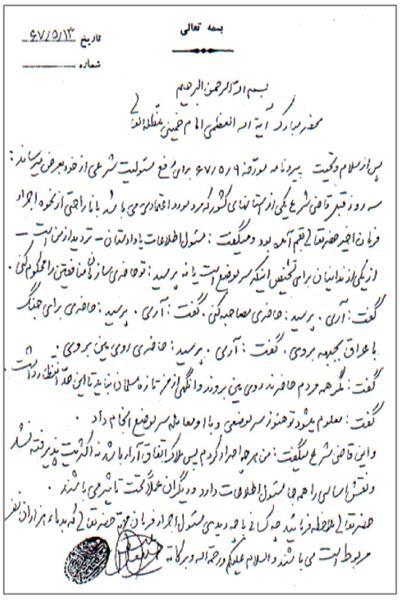 بسمه تعالی
تاریخ ۶۷/۵/۱۳
شماره
بسم الله الرحمن الرحیم
محضر مبارک آیة الله العظمی امام خمینی مدظله العالی
پس از سلام و تحیت پیرو نامه مورخه ۶۷/۵/۹ برای رفع مسئولیت شرعی از خود بعرض میرساند :
سه روز قبل قاضی شرع یکی از استانهای کشور که مرد مورد اعتمادی می باشد با ناراحتی از نحوه اجراء
فرمان اخیر حضرتعالی بقم آمده بود و میگفت : مسئول اطلاعات یا دادستان - تردید از من است -
از یکی از زندانیان برای تشخیص اینکه سر موضع است یا نه پرسید : تو حاضری سازمان منافقین را محکوم کنی
گفت : آری . پرسید : حاضری مصاحبه کنی . گفت : آری . پرسید : حاضری برای جنگ
با عراق بجبهه بروی . گفت : آری . پرسید : حاضری روی مین بروی .
گفت : مگر همه مردم حاضرند روی مین بروند وانگهی از من تازه مسلمان نباید تا این حد انتظار داشت .
گفت : معلوم میشود تو هنوز سر موضعی و با او معامله سر موضع انجام داد
و این قاضی شرع میگفت : من هر چه اصرار کردم پس ملاک اتفاق آراء باشد نه اکثریت پذیرفته نشد
و نقش اساسی را همه جا مسئول اطلاعات دارد و دیگران عملا تحت تاثیر می باشند .
حضرتعالی ملاحظه فرمائید که چه کسانی با چه دیدی مسئول اجراء فرمان مهم حضرتعالی که بدماء هزاران نفر
مربوط است می باشند و السلام علیکم و رحمة الله و برکاته